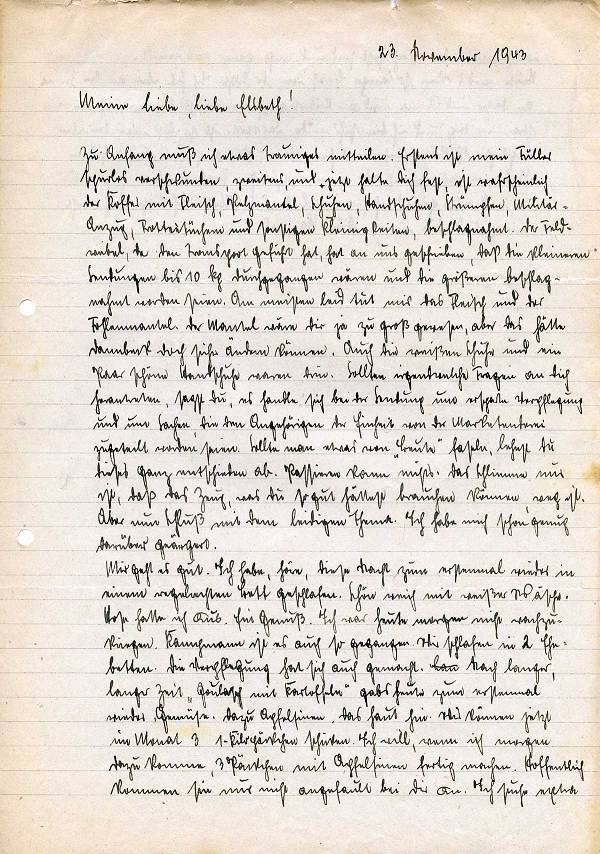 23. November 1943
Meine liebe, liebe Elsbeth!
Zu Anfang muß ich etwas Trauriges mitteilen. Erstens ist mein Füller
spurlos verschwunden, zweitens, und jetzt halte Dich fest, ist wahrscheinlich
der Koffer mit Fleisch, Pelzmantel, Schuhen, Handschuhen, Strümpfen, Militär-
Anzug, Frottiertüchern und sonstigen Kleinigkeiten, beschlagnahmt. Der Feld-
webel, der den Transport geführt hat, hat an uns geschrieben, daß die kleineren
Sendungen bis 10 kg durchgegangen wären und die größeren beschlag-
nahmt worden seien. Am meisten leid tut mir das Fleisch und der
Fohlenmantel. Der Mantel wäre Dir ja zu groß gewesen, aber das hätte
doch ändern können. Auch die weißen Schuhe und ein
Paar schöne Handschuhe waren drin. Sollten irgendwelche Fragen an Dich
herantreten, sagst Du, es handle sich bei der Sendung um ersparte Verpflegung
und um Sachen, die den Angehörigen der Einheit von der Marketenderei
zugeteilt worden seien. Sollte man etwas von "Beute" faseln, lehnst Du
dieses ganz entschieden ab. Passieren kann nichts. Das Schlimme nur
ist, daß das Zeug, was Du so gut hättest brauchen können, weg ist.
Aber nun Schluß mit dem leidigen Thema. Ich habe mich schon genug
darüber geärgert.
Mir geht es gut. Ich habe, höre, diese Nacht zum erstenmal wieder in
einem regelrechten Bett geschlafen. Schön weich mit weißer Wäsche.
hatte ich aus. Ein Genuß. Ich war heute morgen nicht wachzu-
kriegen. Kampmann ist es auch so gegangen. Wir schlafen in 2 Ehe-
betten. Die Verpflegung hat sich auch gemacht. Nach langer,
langer Zeit "Goulasch mit Kartoffeln" gabs heute zum erstenmal
wieder Gemüse. Dazu Apfelsinen. Das haut hin. Wir können jetzt
im Monat 3 1-Kilopäckchen schicken. Ich will, wenn ich morgen
dazu komme, 3 Päckchen mit Apfelsinen fertig machen. Hoffentlich
kommen sie nur nicht angefault bei Dir an. Ich suche extra